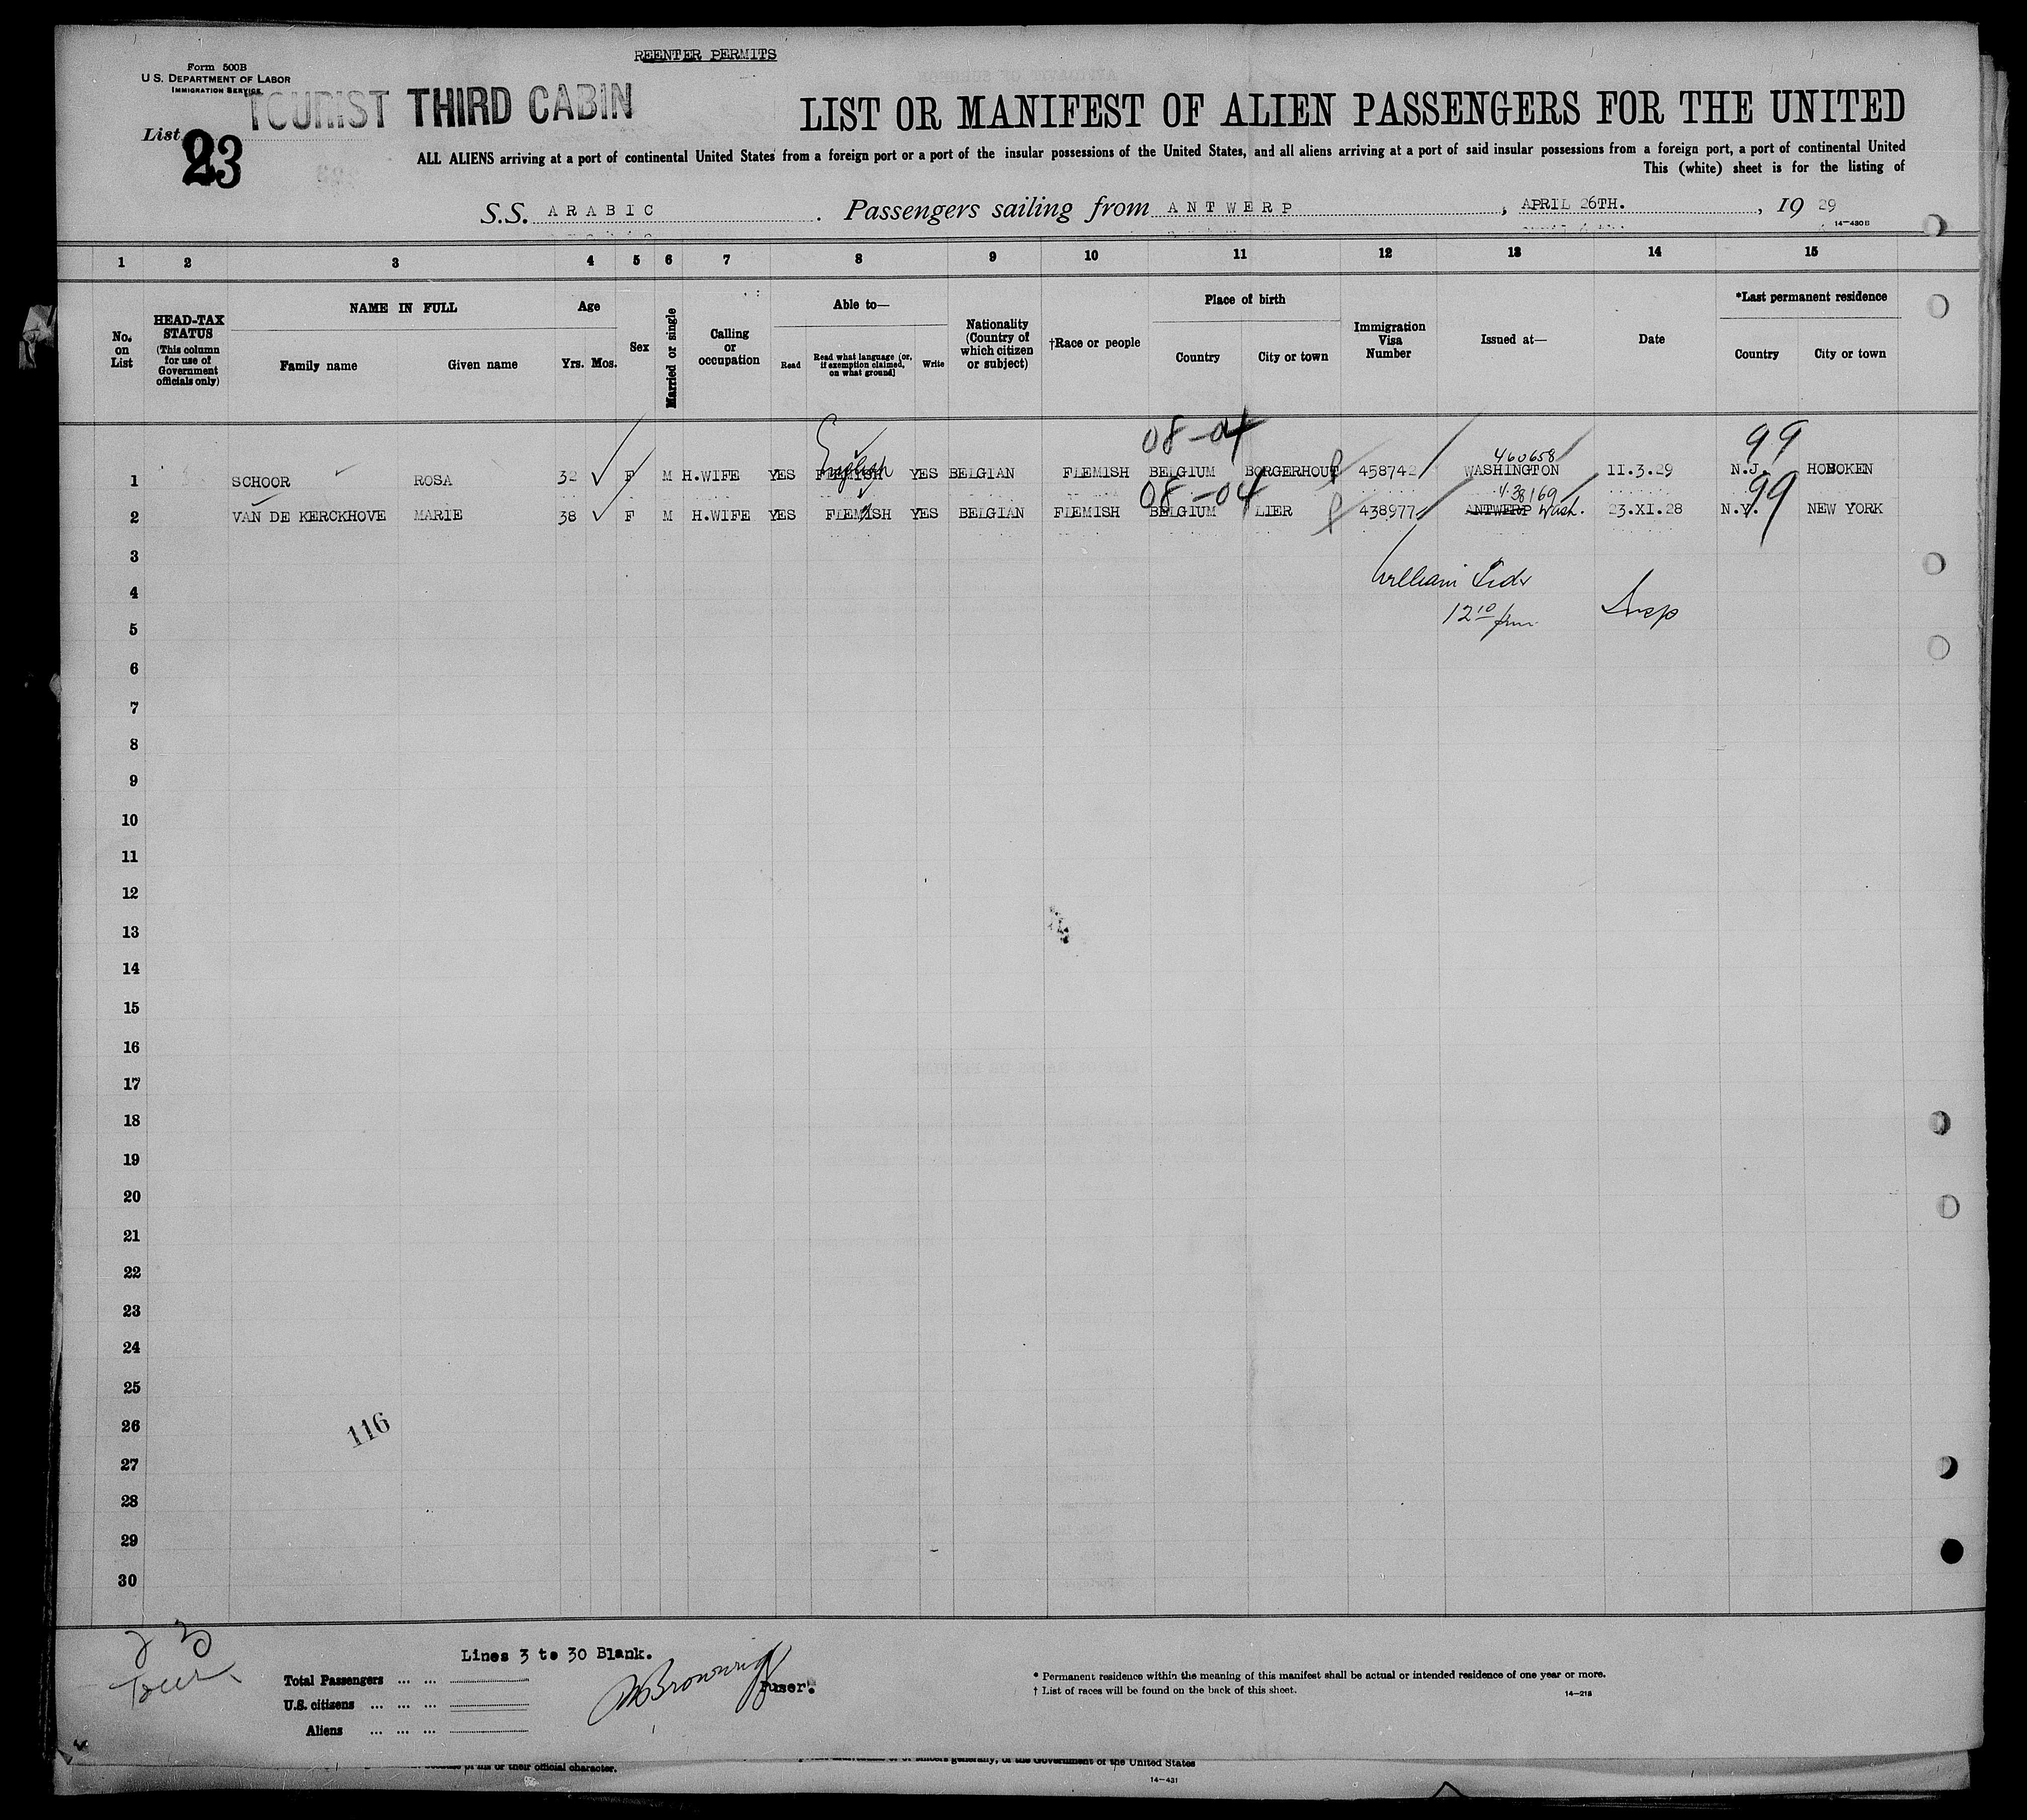 REENTER PERMITS
Form 500B
U.S. DEPARTMENT OF LABOR
IMMIGRATION SERVICE
TOURIST THIRD CABIN
List 23
LIST OR MANIFEST OF ALIEN PASSENGERS FOR THE UNITED
ALL ALIENS arriving at a port of continental United States from a foreign port or a port of the insular possessions of the United States, and all aliens arriving at a port of said insular possessions from a foreign port, a port of continental United
This (white) sheet is for the listing of
S.S. ARABIC . Passengers sailing from ANTWERP , APRIL 26TH. , 19 29
14-430B
1 2 3 4 5 6 7 8 9 10 11 12 13 14 15
No. on List
HEAD-TAX STATUS
(This column for use of Government officials only)
NAME IN FULL
Family name Given name
Age
Yrs. Mos.
Sex
Married or single
Calling or occupation
Able to—
Read Read what language (or, if exemption claimed, on what ground) Write
Nationality (Country of which citizen or subject)
†Race or people
Place of birth
Country City or town
Immigration Visa Number
Issued at—
Date
*Last permanent residence
Country City or town
08-04 460658 99
English
1 SCHOOR ROSA 32 F M H.WIFE YES FLEMISH YES BELGIAN FLEMISH BELGIUM BORGERHOUT 458742 WASHINGTON 11.3.29 N.J. HOBOKEN
08-04 438169 99
2 VAN DE KERCKHOVE MARIE 38 F M H.WIFE YES FLEMISH YES BELGIAN FLEMISH BELGIUM LIER 438977 ANTWERP Wash. 23.XI.28 N.Y. NEW YORK
3
William
4
12 10 pm Insp
5
6
7
8
9
10
11
12
13
14
15
16
17
18
19
20
21
22
23
24
25
26
116
27
28
29
30
23
Tour
Lines 3 to 30 Blank.
Total Passengers ... ...
U.S. citizens ... ... ...
Aliens ... ... ...
Browning
Puser.
* Permanent residence within the meaning of this manifest shall be actual or intended residence of one year or more.
† List of races will be found on the back of this sheet.
14-218
of his or their official character.
generally, of the Government of the United States
14-431